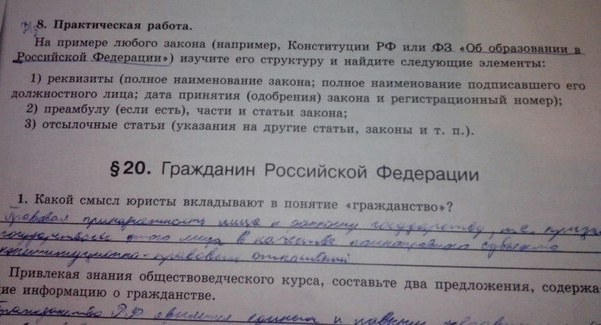 8. Практическая работа.
На примере любого закона (например, Конституции РФ или ФЗ «Об образовании в
Российской Федерации») изучите его структуру и найдите следующие элементы:
1) реквизиты (полное наименование закона; полное наименование подписавшего его
должностного лица; дата принятия (одобрения) закона и регистрационный номер);
2) преамбулу (если есть), части и статьи закона;
3) отсылочные статьи (указания на другие статьи, законы и т. п.).
§ 20. Гражданин Российской Федерации
1. Какой смысл юристы вкладывают в понятие «гражданство»?
Правовая принадлежность лица к данному государству, т.е. призна
государством этого лица в качестве полноправного субъекта
конституционно-правовых отношений
Привлекая знания обществоведческого курса, составьте два предложения, содержа
ие информацию о гражданстве.
Гражданство РФ является единым и равным